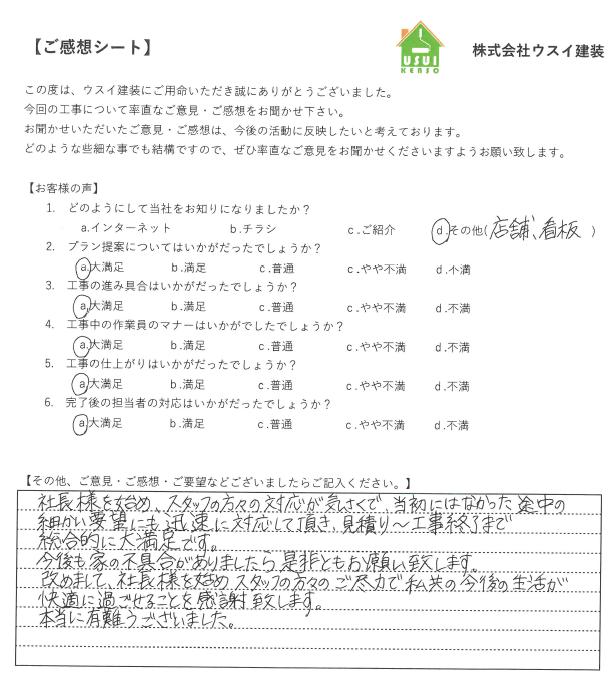 【ご感想シート】
USUI
KENSO
株式会社ウスイ建装
この度は、ウスイ建装にご用命いただき誠にありがとうございました。
今回の工事について率直なご意見・ご感想をお聞かせ下さい。
お聞かせいただいたご意見・ご感想は、今後の活動に反映したいと考えております。
どのような些細な事でも結構ですので、ぜひ率直なご意見をお聞かせくださいますようお願い致します。
【お客様の声】
1. どのようにして当社をお知りになりましたか？
a.インターネット b.チラシ c.ご紹介 d.その他(店舗、看板)
2. プラン提案についてはいかがだったでしょうか？
a.大満足 b.満足 c.普通 c.やや不満 d.不満
3. 工事の進み具合はいかがだったでしょうか？
a.大満足 b.満足 c.普通 c.やや不満 d.不満
4. 工事中の作業員のマナーはいかがでしたでしょうか？
a.大満足 b.満足 c.普通 c.やや不満 d.不満
5. 工事の仕上がりはいかがだったでしょうか？
a.大満足 b.満足 c.普通 c.やや不満 d.不満
6. 完了後の担当者の対応はいかがだったでしょうか？
a.大満足 b.満足 c.普通 c.やや不満 d.不満
【その他、ご意見・ご感想・ご要望などございましたらご記入ください。】
社長様を始め、スタッフの方々の対応が気さくで、当初にはなかった途中の
細かい要望にも迅速に対応して頂き、見積り～工事終了まで
総合的に大満足です。
今後も家の不具合がありましたら是非ともお願い致します。
改めまして、社長様を始めスタッフの方々のご尽力で私共の今後の生活が
快適に過ごせることを感謝致します。
本当に有難うございました。